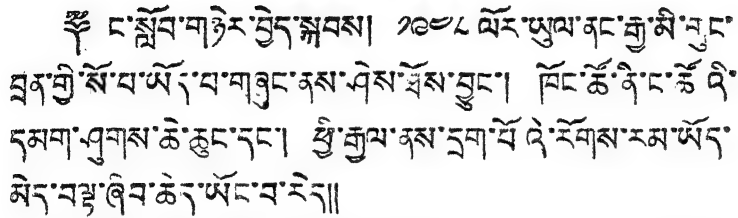 ༈ ང་སློབ་གཉེར་བྱེད་སྐབས། ༡༩༤༨ ལོར་ཡུལ་ནང་རྒྱ་མི་གུང་
བྲན་གྱི་སོ་པ་ཡོད་པ་གཞུང་ནས་ཤེས་ཐོས་བྱུང་། ཁོང་ཚོ་ནི་ང་ཚོ་འི་
དམག་ཤུགས་ཆེ་ཆུང་དང་། ཕྱི་རྒྱལ་ནས་དྲག་པོ་འི་རོགས་རམ་ཡོད་
མེད་བལྟ་ཞིབ་ཆེད་ཡོང་བ་རེད།།